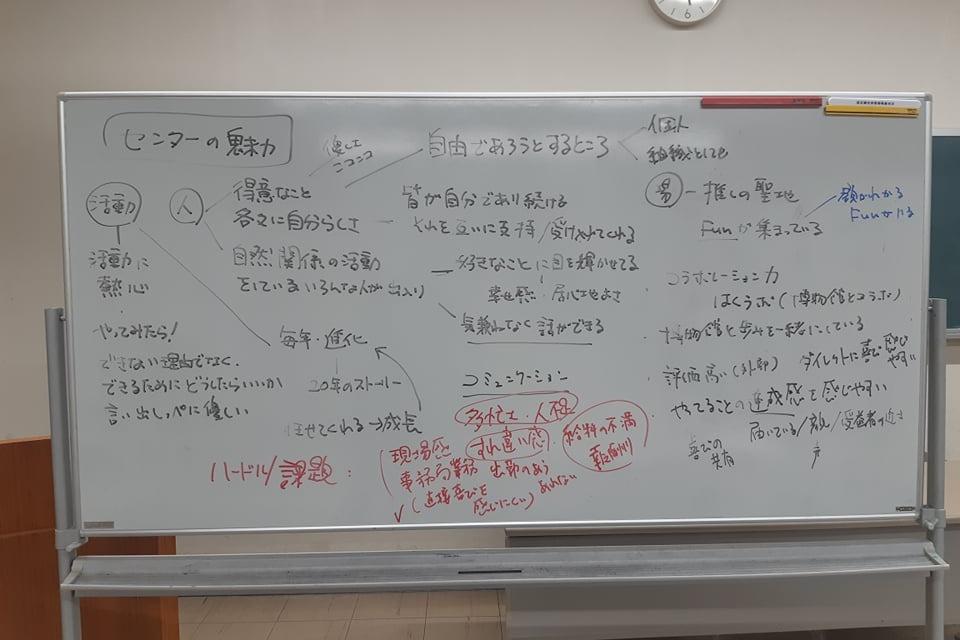 センターの魅力
優しい
ニコニコ
自由であろうとするところ
個人
組織としても
活動
人
得意なこと
各々に自分らしさ
皆が自分であり続ける
それを互いに支持/受け入れてくれる
場
推しの聖地
Funが集まっている
顔がわかる
活動に
熱心
自然関係の活動
をしているいろんな人が出入り
好きなことに目を輝かせてる
幸せ感・居心地よさ
気兼ねなく話ができる
コラボレーション力
はくラボ(博物館とコラボ)
博物館と歩みを一緒にしている
評価高い(外部)
ダイレクトに喜び感じ
やすい
やってることの達成感を感じやすい
届いている/
受益者の近さ
喜びの
共有
声
やってみたら!
できない理由でなく、
できるためにどうしたらいいか
言い出しっぺに優しい
毎年・進化
20年のストーリー
任せてくれる→成長
コミュニケーション
多忙さ・人柱
ハードル/課題:
現場感
すれ違い感
給料の不満
報酬
事務局業務
(直接喜びを
感じにくい)